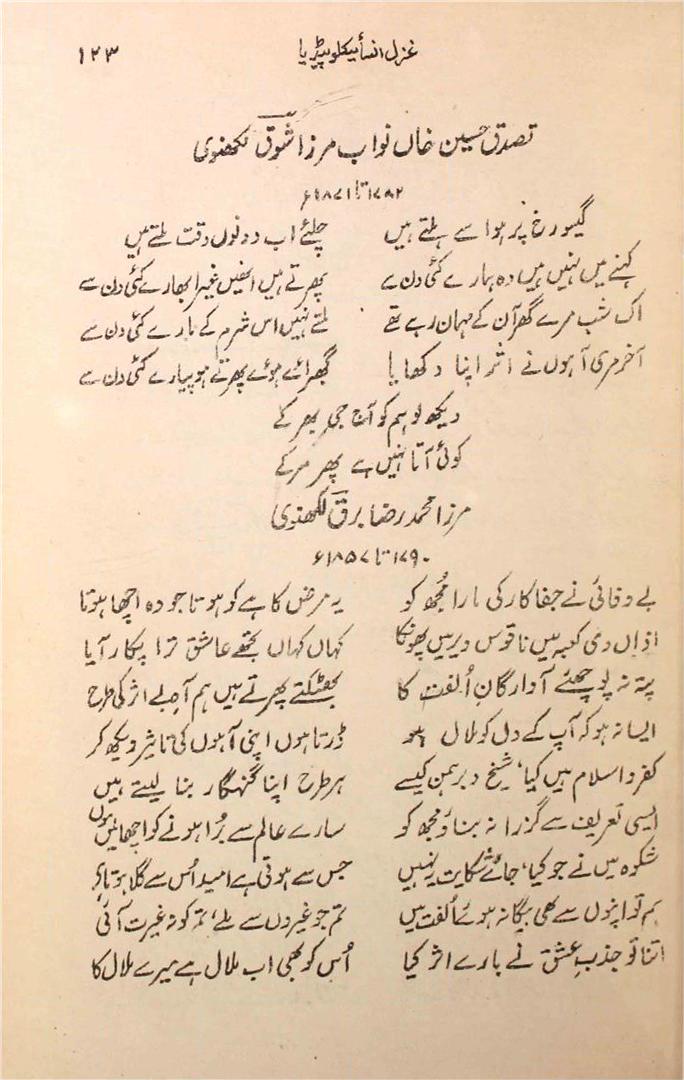 غزل انسائیکلوپیڈیا ۱۲۳
تصدق حسین خاں نواب مرزا شوق لکھنوی
۱۷۸۲ تا ۱۸۷۱ء
گیسو رخ پر ہوا سے ہلتے ہیں چلئے اب دونوں وقت ملتے ہیں
کہنے میں نہیں ہیں وہ ہمارے کئی دن سے پھرتے ہیں انھیں غیر ابھارے کئی دن سے
اک شب مرے گھر آن کے مہمان رہے تھے ملتے نہیں اس شرم کے مارے کئی دن سے
آخر مری آہوں نے اثر اپنا دکھایا گھبرائے ہوئے پھرتے ہو پیارے کئی دن سے
دیکھ لو ہم کو آج جی بھر کے
کوئی آتا نہیں ہے پھر مر کے
مرزا محمد رضا برق لکھنوی
۱۷۹۰ تا ۱۸۵۷ء
بے وفائی نے جفا کار کی مارا مُجھ کو یہ مرض کاہے کو ہوتا جو وہ اچھا ہوتا
اذاں دی کعبہ میں ناقوس دیر میں پھونکا کہاں کہاں تجھے عاشق ترا پکار آیا
پتہ نہ پوچھئے آوارگانِ اُلفت کا بھٹکتے پھرتے ہیں ہم آہِ بے اثر کی طرح
ایسا نہ ہو کہ آپ کے دل کو ملال ہو ڈرتا ہوں اپنی آہوں کی تاثیر دیکھ کر
کفر و اسلام میں کیا، شیخ و برہمن کیسے ہر طرح اپنا گنہگار بنا لیتے ہیں
ایسی تعریف سے گزرا نہ بناؤ مجھ کو سارے عالم سے بُرا ہونے کو اچھا میں ہوں
شکوہ میں نے جو کیا، جائے شکایت یہ نہیں جس سے ہوتی ہے امید اُس سے گلا ہوتا ہے
ہم تو اپنوں سے بھی بیگانہ ہوئے اُلفت میں تم جو غیروں سے ملے، تم کو نہ غیرت آئی
اتنا تو جذبِ عشق نے بارے اثر کیا اُس کو بھی اب ملال ہے میرے ملال کا